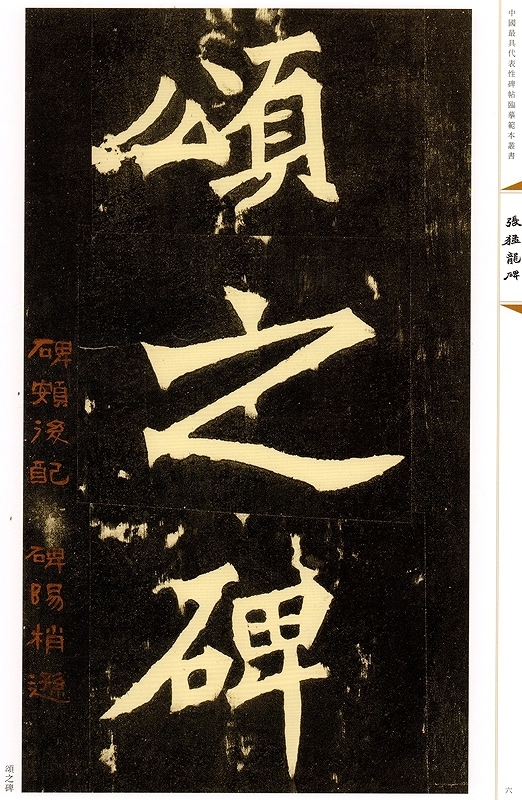 中國最具代表性碑帖臨摹範本叢書
張猛龍碑
六
頌之碑
碑額後配 碑陽稍遜
頌之碑